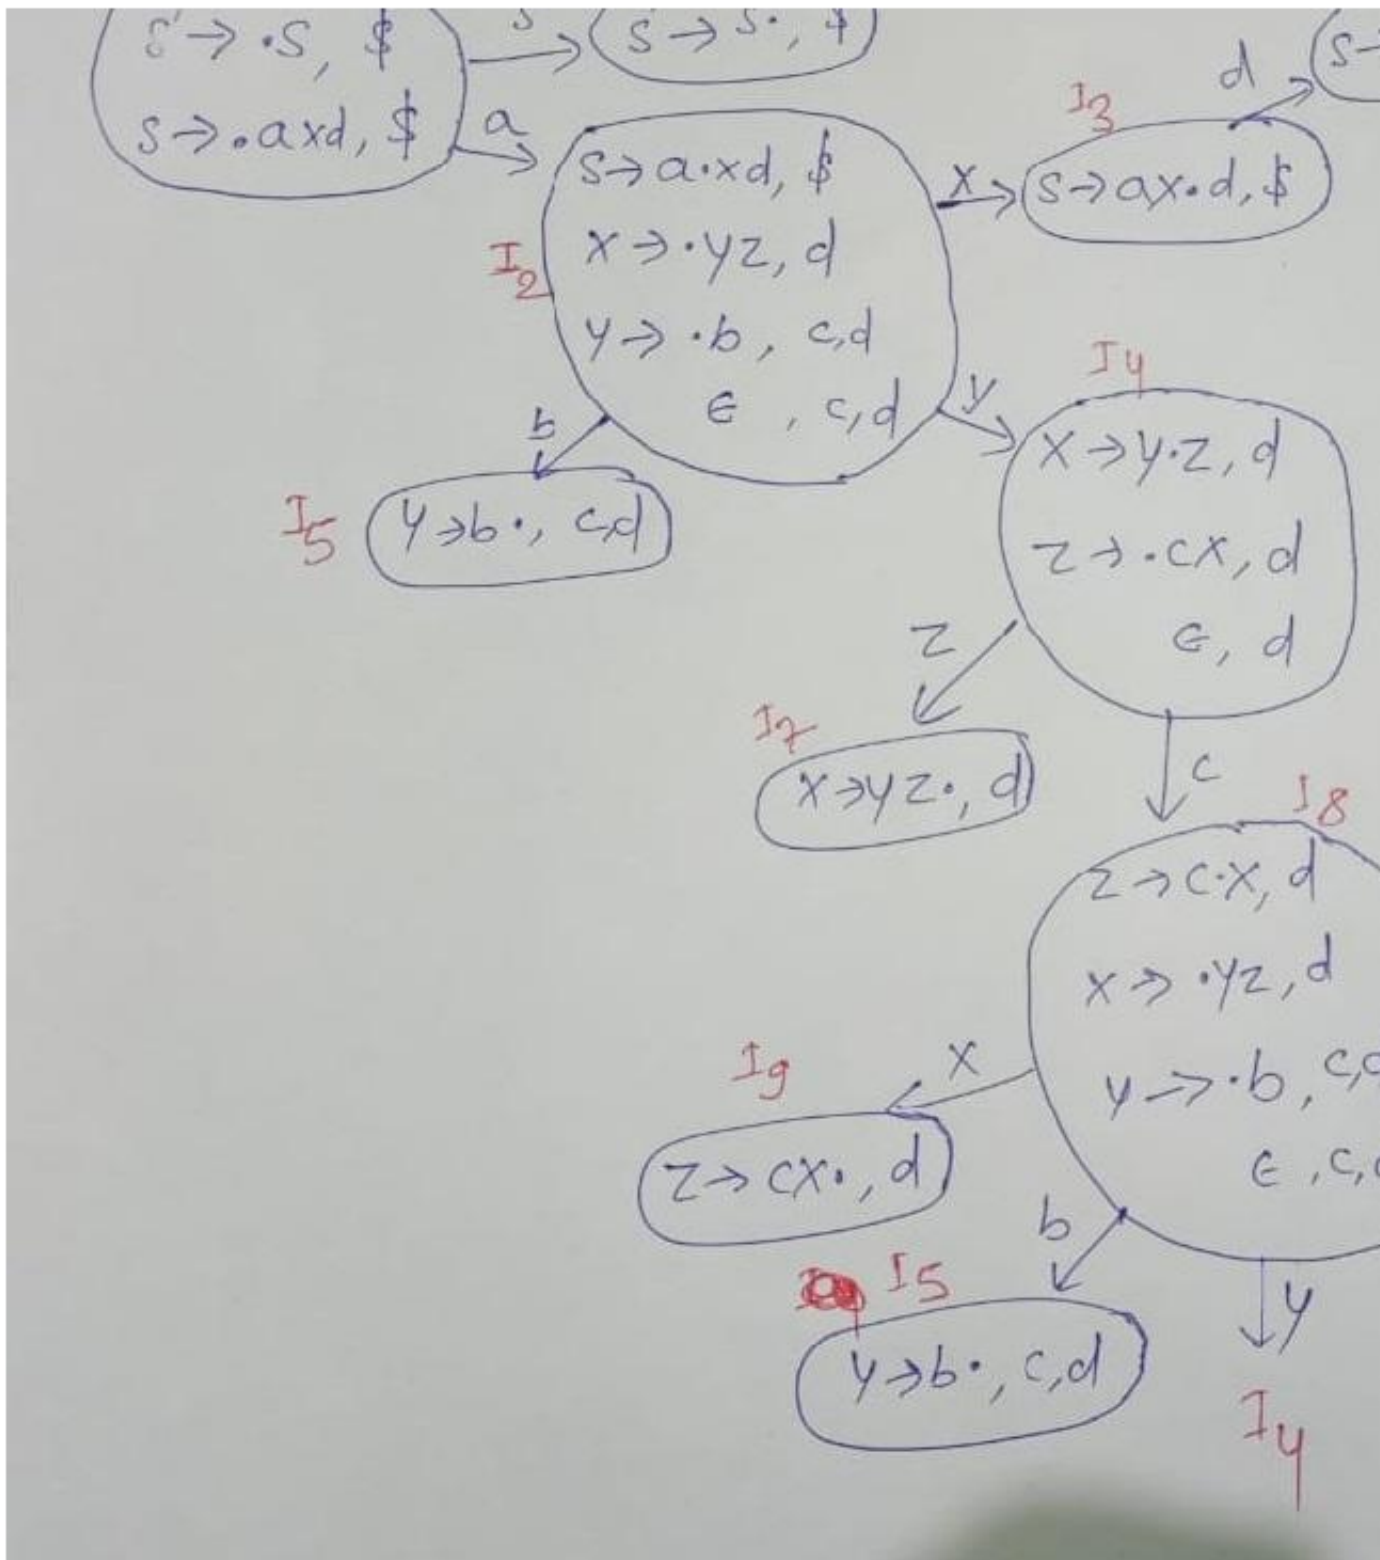 S' → ·S, $
S
S → S·, $
S → ·axd, $
a
I2
S → a·xd, $
X → ·YZ, d
Y → ·b, c,d
ϵ, c,d
X
I3
S → aX·d, $
d
S →
b
I5
Y → b·, c,d
Y
I4
X → Y·Z, d
Z → ·cX, d
ϵ, d
Z
I7
X → YZ·, d
c
I8
Z → c·X, d
X → ·YZ, d
Y → ·b, c,
ϵ, c,
X
I9
Z → cX·, d
b
I5
Y → b·, c,d
Y
I4